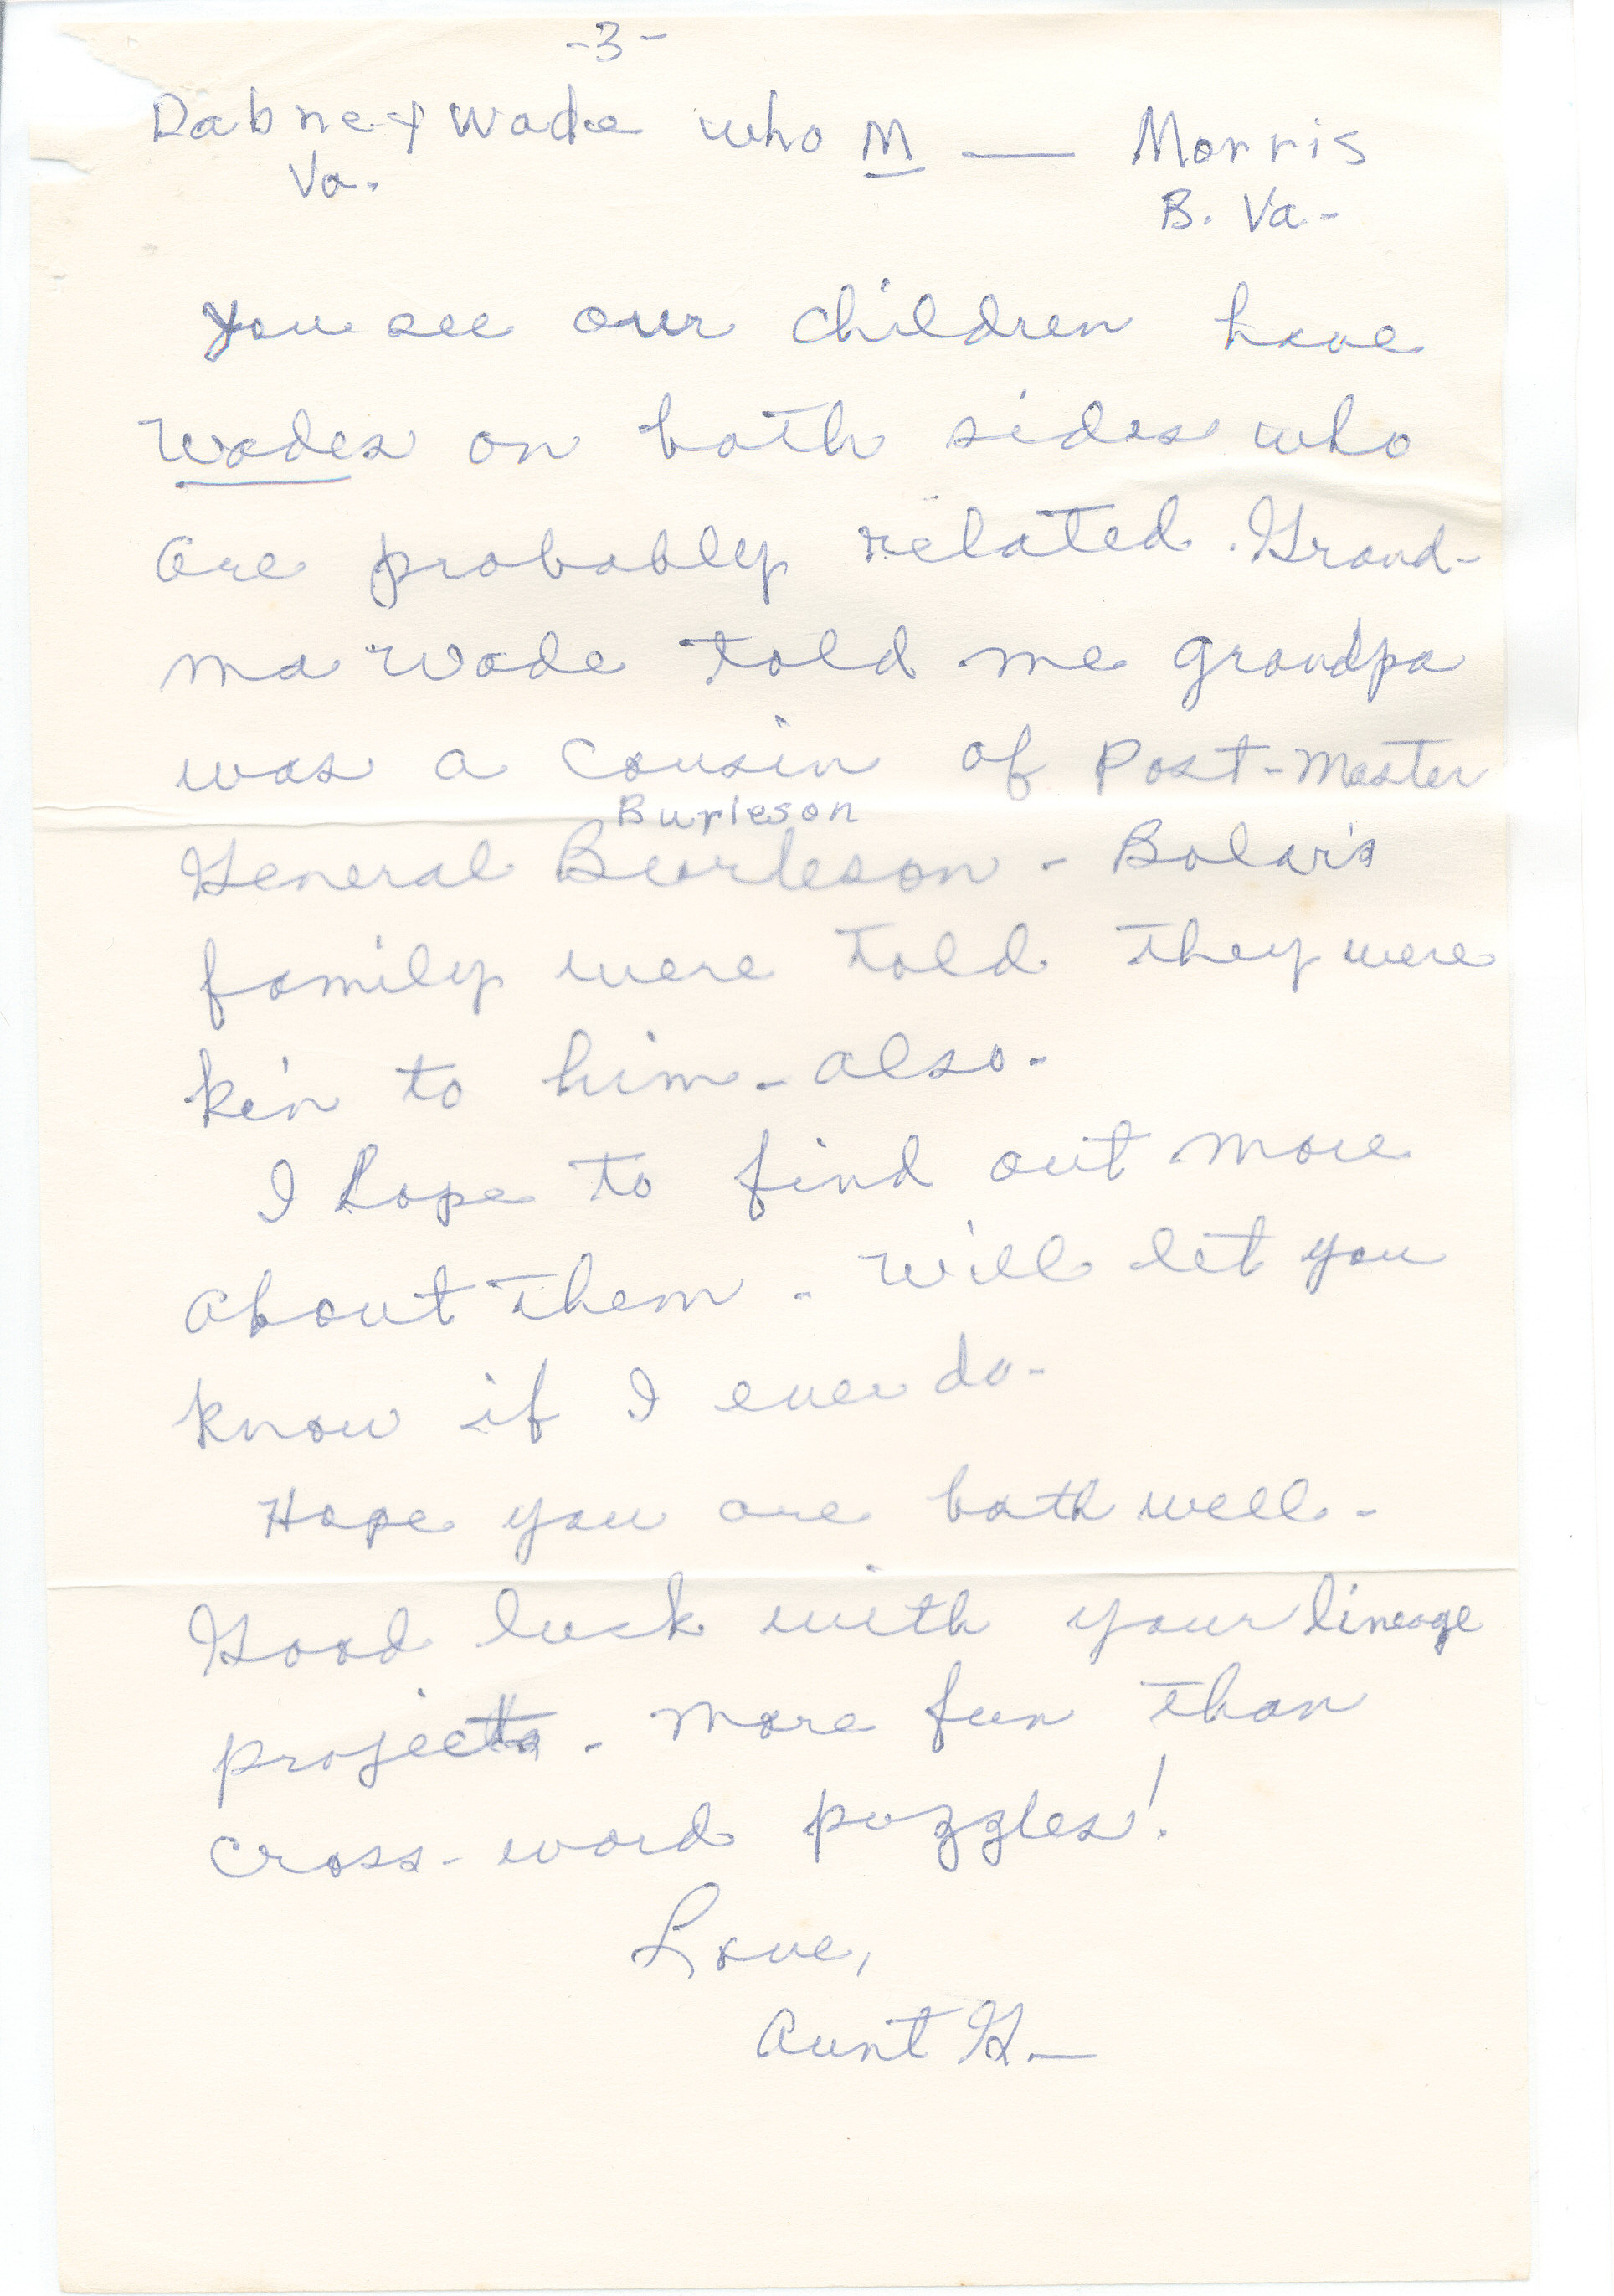 -3-
Dabney Wade who M — Morris
Va. B. Va-
You see our children have
Wades on both sides who
are probably related. Grand-
ma Wade told me grandpa
was a cousin of Post-Master
Burleson
General Burleson - Bolar's
family were told they were
kin to him - also -
I hope to find out more
about them - Will let you
know if I ever do -
Hope you are both well -
Good luck with your lineage
projects - More fun than
cross-word puzzles!
Love,
Aunt G —